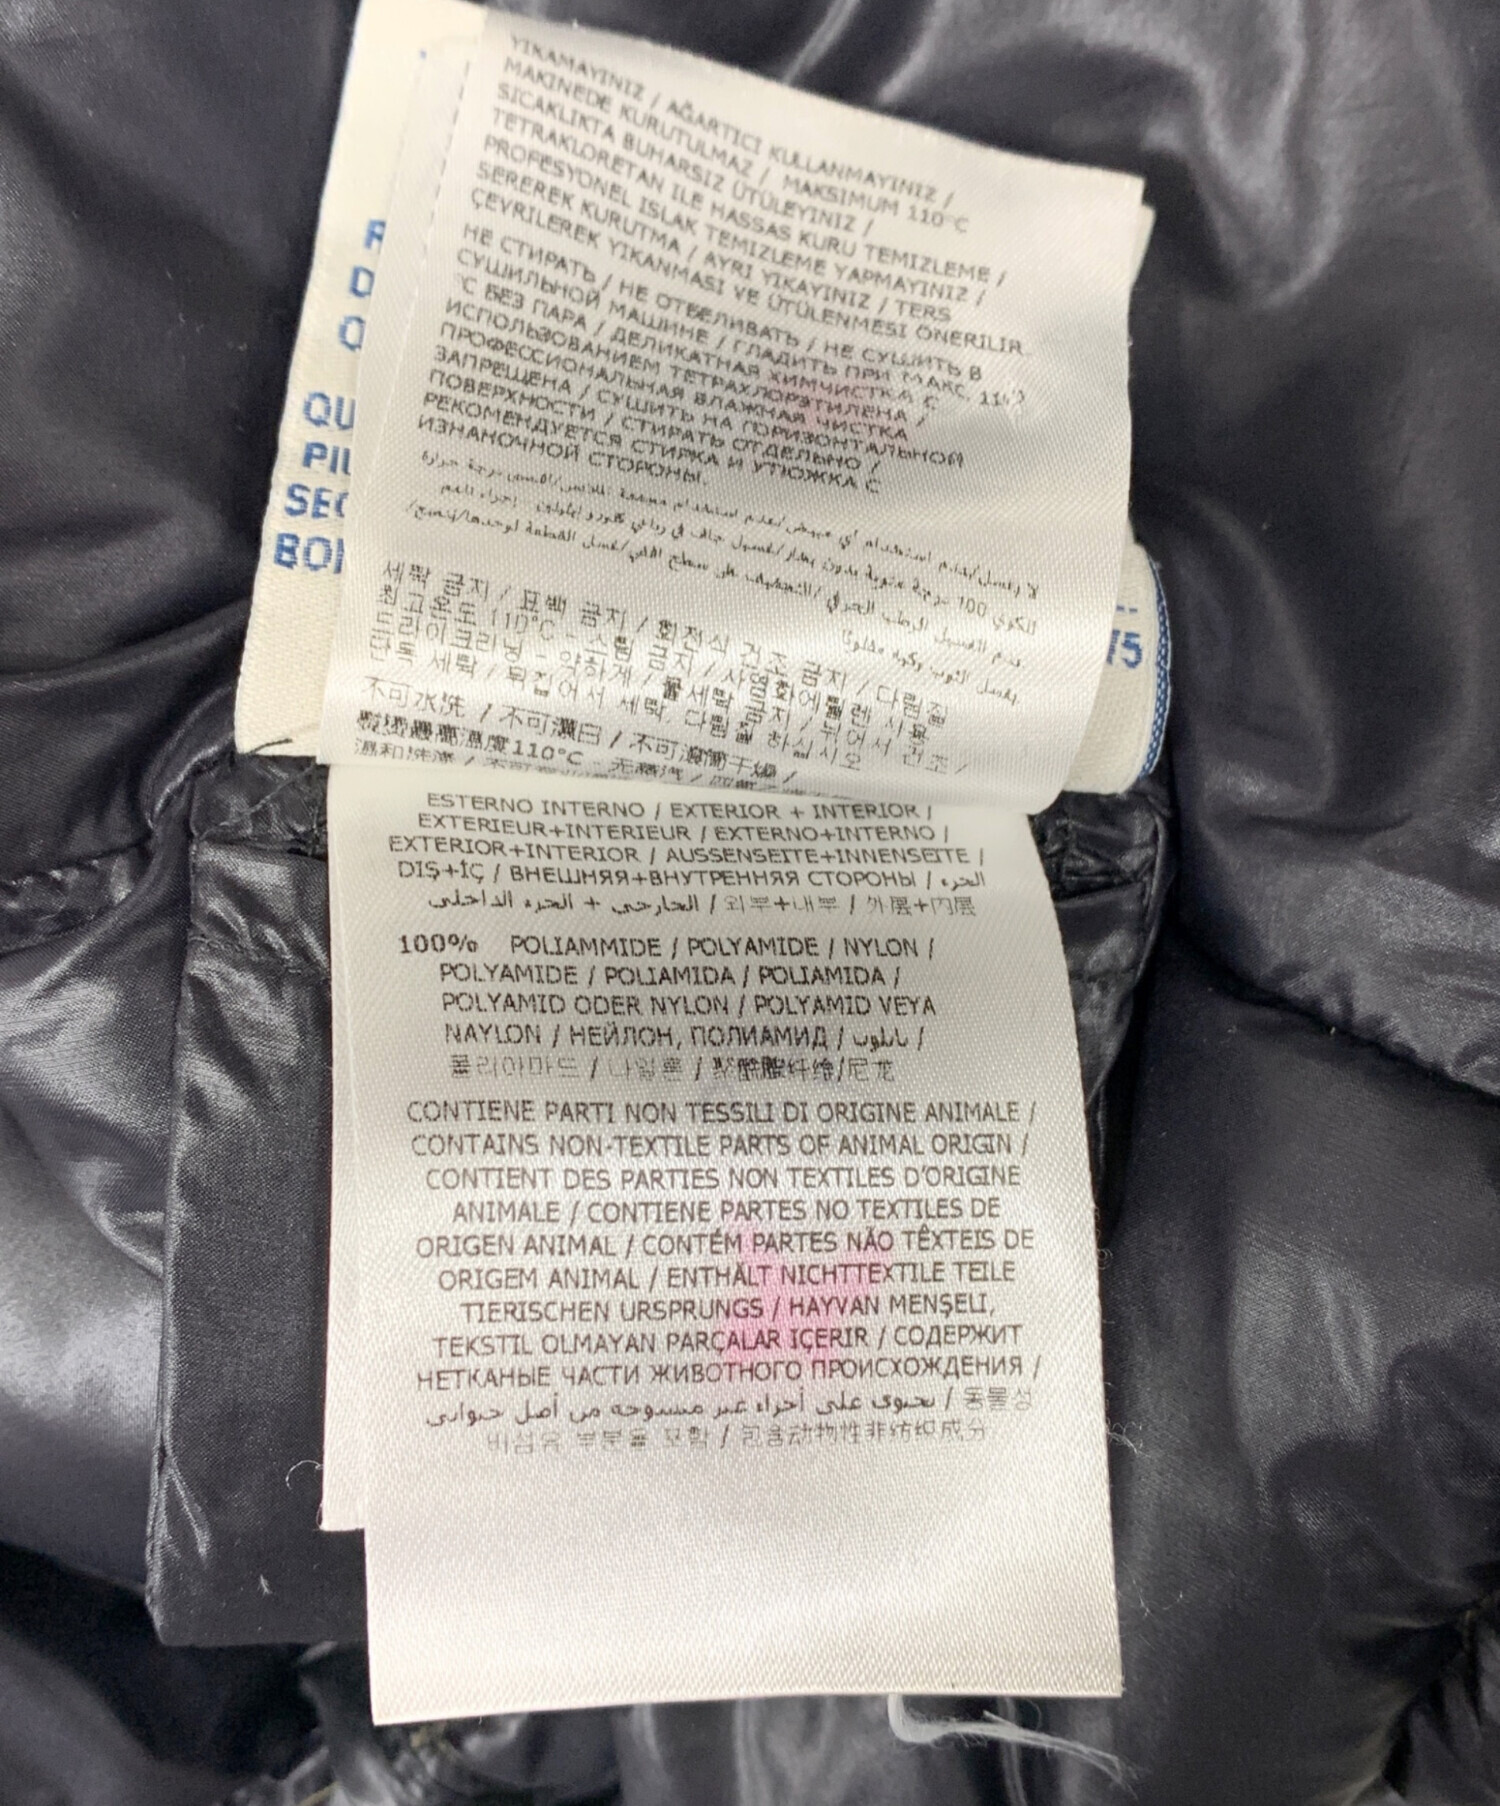 YIKAMAYINIZ / AĞARTICI KULLANMAYINIZ /
MAKINEDE KURUTULMAZ / MAKSIMUM 110°C
SICAKLIKTA BUHARSIZ ÜTÜLEYINIZ /
TETRAKLORETAN ILE HASSAS KURU TEMIZLEME /
PROFESYONEL ISLAK TEMIZLEME YAPMAYINIZ /
SEREREK KURUTMA / AYRI YIKAYINIZ / TERS
ÇEVRILEREK YIKANMASI VE ÜTÜLENMESI ÖNERILIR.
НЕ СТИРАТЬ / НЕ ОТБЕЛИВАТЬ / НЕ СУШИТЬ В
СУШИЛЬНОЙ МАШИНЕ / ГЛАДИТЬ ПРИ МАКС. 110
°C БЕЗ ПАРА / ДЕЛИКАТНАЯ ХИМЧИСТКА С
ИСПОЛЬЗОВАНИЕМ ТЕТРАХЛОРЭТИЛЕНА /
ПРОФЕССИОНАЛЬНАЯ ВЛАЖНАЯ ЧИСТКА
ЗАПРЕЩЕНА / СУШИТЬ НА ГОРИЗОНТАЛЬНОЙ
ПОВЕРХНОСТИ / СТИРАТЬ ОТДЕЛЬНО /
РЕКОМЕНДУЕТСЯ СТИРКА И УТЮЖКА С
ИЗНАНОЧНОЙ СТОРОНЫ.
세탁 금지 / 표백 금지 / 회전식 건조 금지 / 다림질
최고온도 110°C - 스팀 금지 / 사염화에틸렌 사용
드라이크리닝 - 약하게 / 물세탁 금지 / 뉘어서 건조 /
단독 세탁 / 뒤집어서 세탁, 다림질 하십시오
不可水洗 / 不可漂白 / 不可滚筒干燥 /
熨烫最高温度110°C - 无蒸汽 /
R
D
O
QU
PIU
SEC
BON
75
ESTERNO INTERNO / EXTERIOR + INTERIOR /
EXTERIEUR+INTERIEUR / EXTERNO+INTERNO /
EXTERIOR+INTERIOR / AUSSENSEITE+INNENSEITE /
DIŞ+İÇ / ВНЕШНЯЯ+ВНУТРЕННЯЯ СТОРОНЫ / الجزء
الخارجي + الجزء الداخلي / 외부+내부 / 外层+内层
100% POLIAMMIDE / POLYAMIDE / NYLON /
POLYAMIDE / POLIAMIDA / POLIAMIDA /
POLYAMID ODER NYLON / POLYAMID VEYA
NAYLON / НЕЙЛОН, ПОЛИАМИД / نايلون /
폴리아마드 / 나일론 / 聚酰胺纤维/尼龙
CONTIENE PARTI NON TESSILI DI ORIGINE ANIMALE /
CONTAINS NON-TEXTILE PARTS OF ANIMAL ORIGIN /
CONTIENT DES PARTIES NON TEXTILES D'ORIGINE
ANIMALE / CONTIENE PARTES NO TEXTILES DE
ORIGEN ANIMAL / CONTÉM PARTES NÃO TÊXTEIS DE
ORIGEM ANIMAL / ENTHÄLT NICHTTEXTILE TEILE
TIERISCHEN URSPRUNGS / HAYVAN MENŞELI,
TEKSTIL OLMAYAN PARÇALAR IÇERIR / СОДЕРЖИТ
НЕТКАНЫЕ ЧАСТИ ЖИВОТНОГО ПРОИСХОЖДЕНИЯ /
يحتوي على أجزاء غير منسوجة من أصل حيواني / 동물성
비섬유 부분을 포함 / 包含动物性非纺织成分